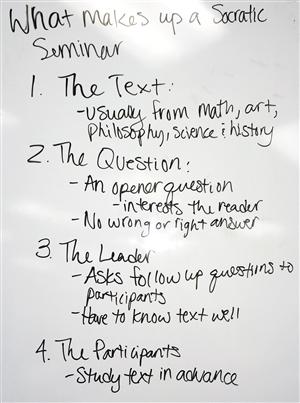 What makes up a Socratic
Seminar
1. The Text:
- usually from math, art,
philosophy, science & history
2. The Question:
- An opener question
- interests the reader
- No wrong or right answer
3. The Leader
- Asks follow up questions to
participants
- Have to know text well
4. The Participants
- Study text in advance